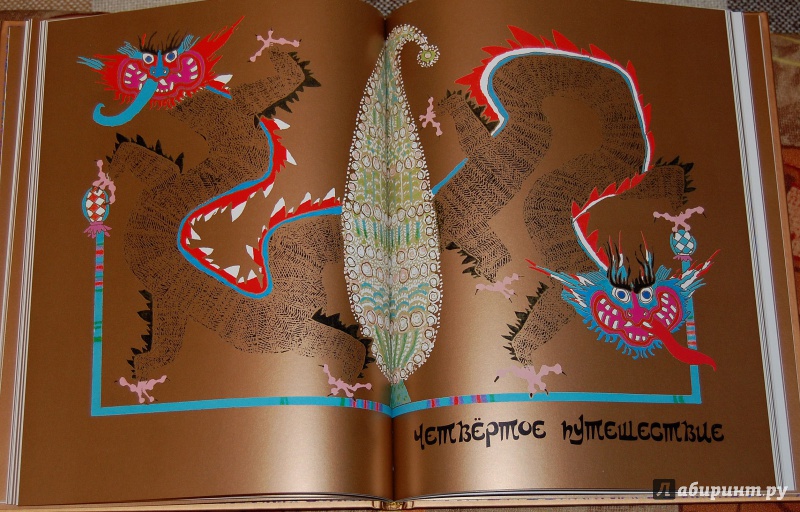 четвёртое путешествие
Лабиринт.ру